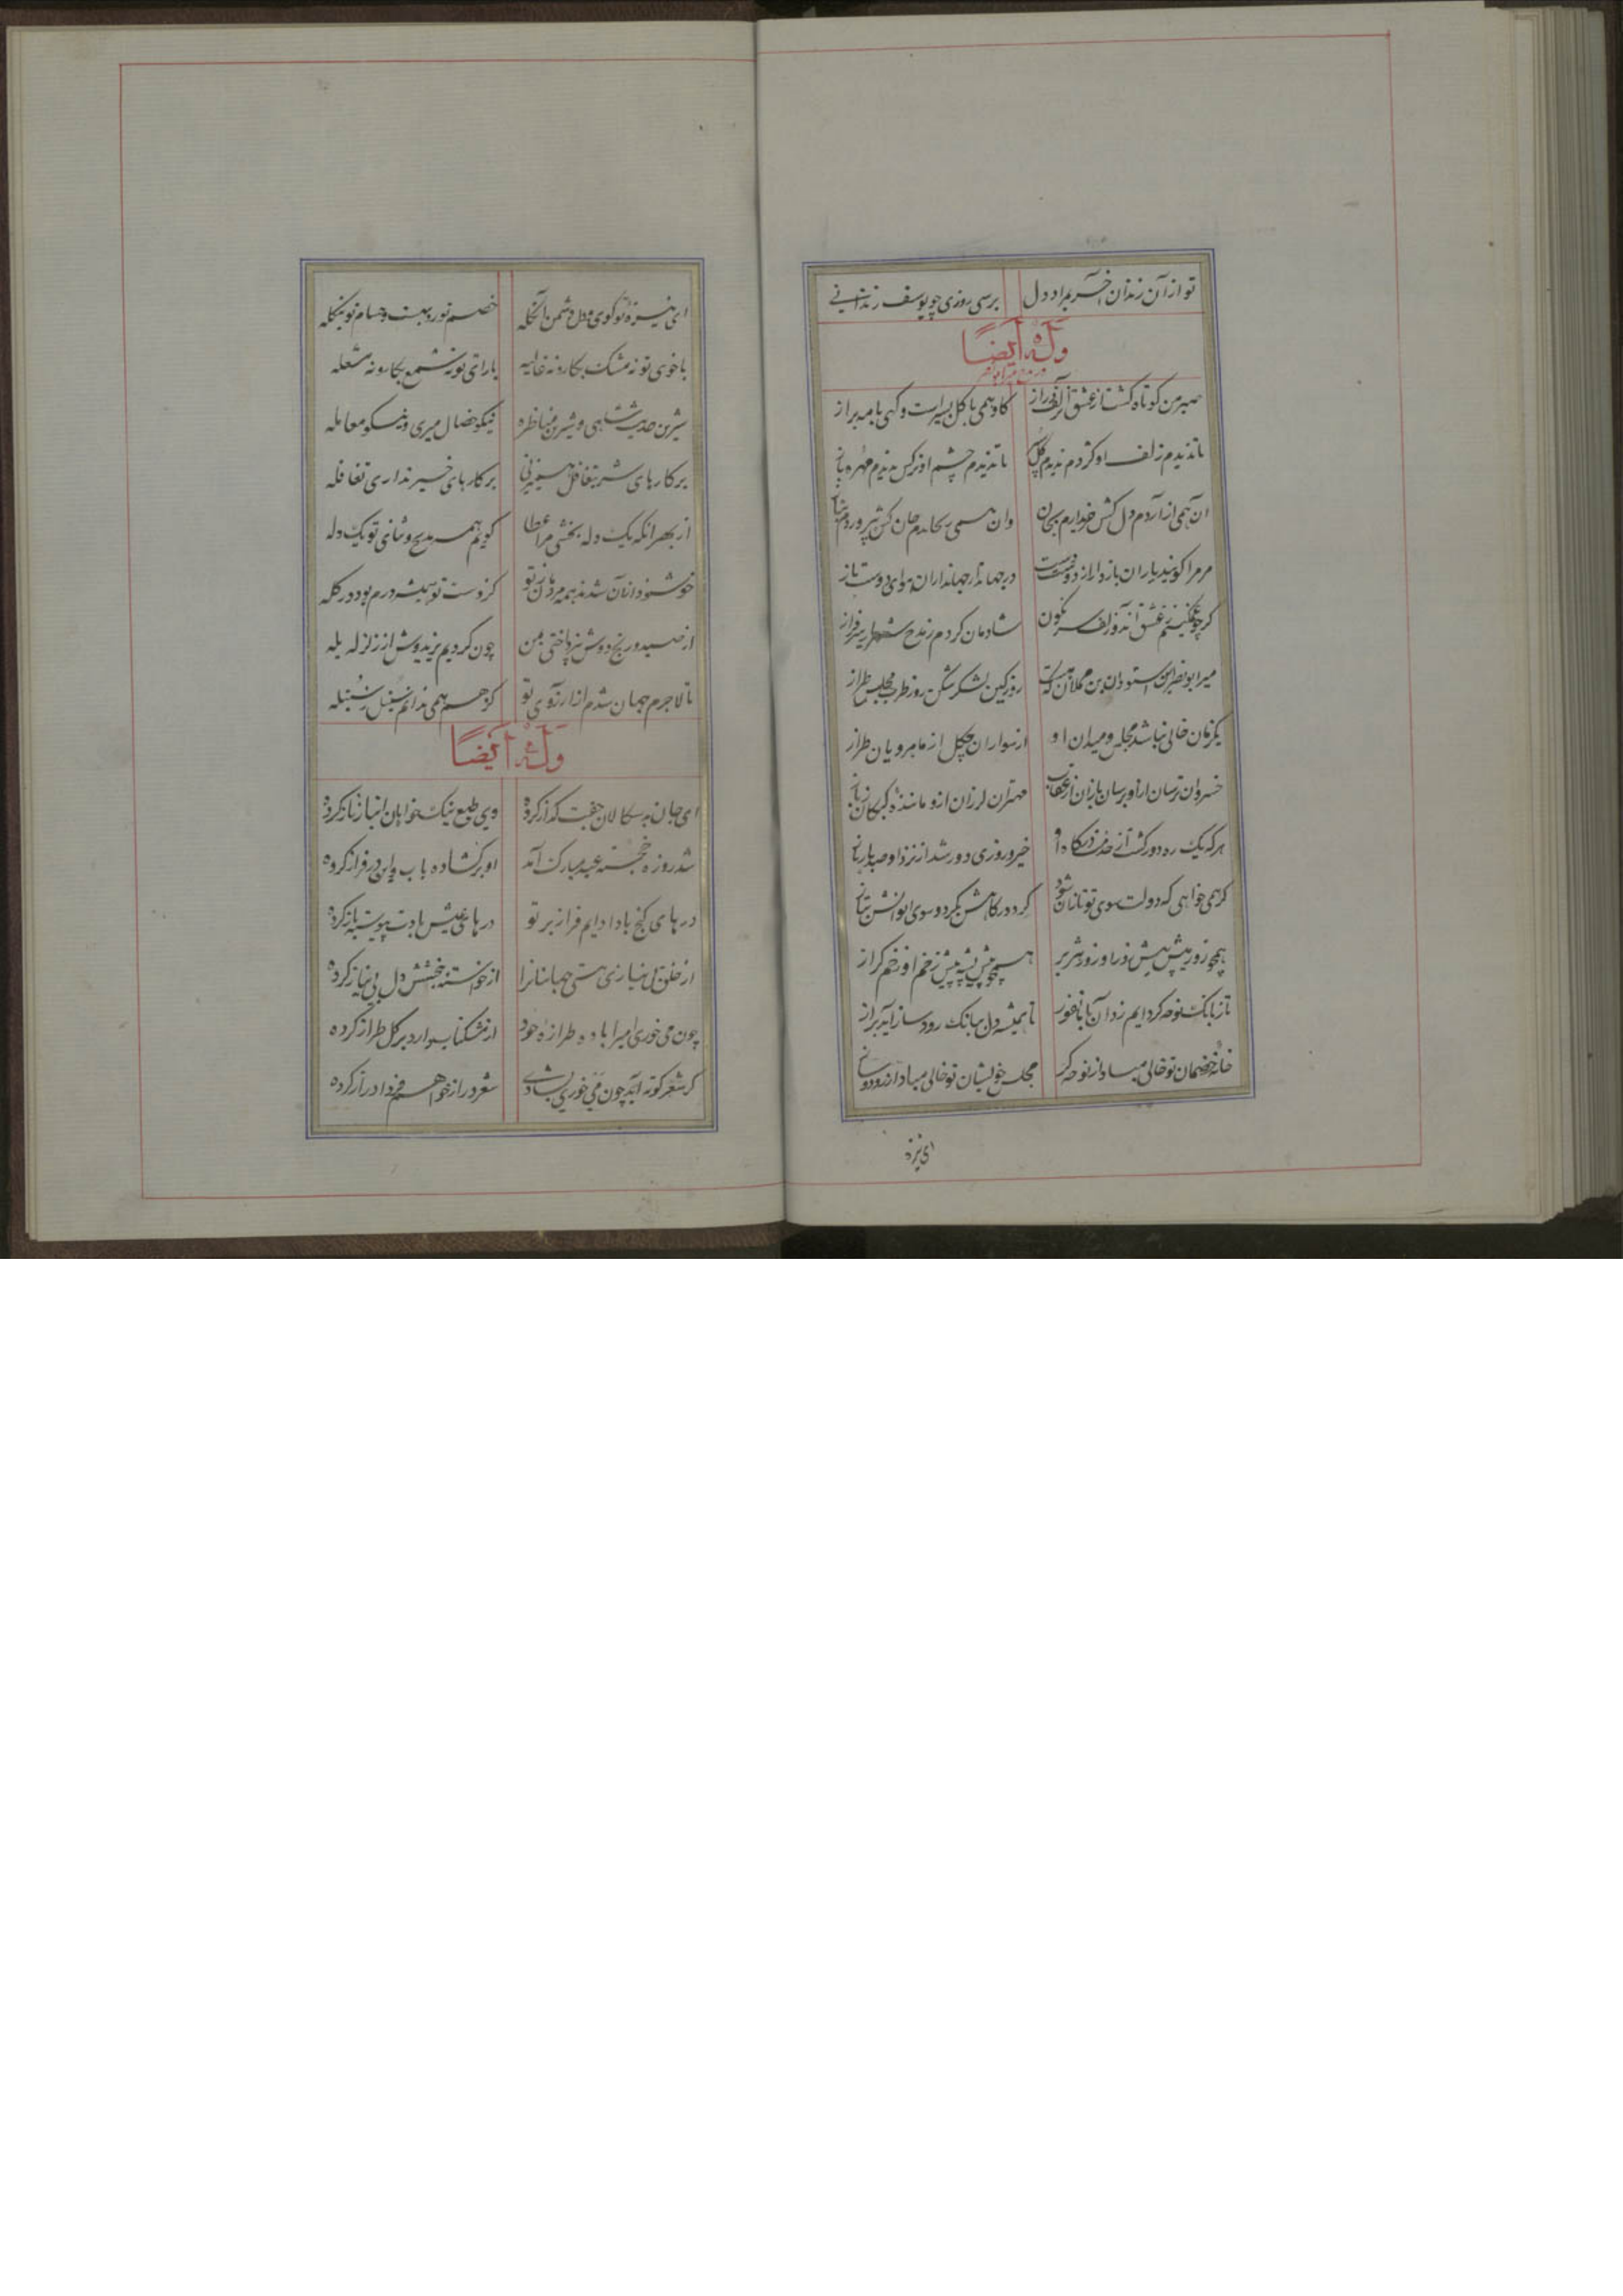 تو از آن زندان آخر بمراد دل برسی روزی چو یوسف زندانی
وله ایضاً
صبر من کوتاه گشت از عشق آن زلف دراز کاو همی با گل بسیراست و گهی با مه براز
تا ندیدم زلف او کردم ندیدم گل تا ندیدم چشم او نرکس ندیدم مهره باز
آن همی آزاردم دل کش خریدارم بجان وان همی بکاهدم جان کش بپروردم بناز
مر مرا گویند یاران باز دار از دوست دست در جهان از جهانداران توای دوست باز
گرچه غمگینم ز عشق آن دو زلف سرنگون شادمان کردم ز مدح شهریار سرفراز
میر ابونصر بن وهسودان بن مملان که هست روز کین لشکر شکن روز طرب مجلس طراز
یکزمان خالی نباشد مجلس و میدان او از سواران چگل از ماهرویان طراز
خسروان ترسان ازو برسان بازان از عقاب مهتران لرزان ازو ماننده کبکان ز باز
هر که یک ره دور گشت از خدمت درگاه او خیر و روزی دور شد از نزد او صد باره باز
گر همی خواهی که دولت سوی تو تازان شود گرد درگاهش بگرد و سوی ایوانش بتاز
همچو زور میش پیش زور او زور هژبر همچو نیش پشه پیش زخم او زخم گراز
تا ز بانگ نوحه گر دایم روان یابد نفور تا همیشه دل ببانگ رود ساز آید براز
خانه خصمان تو خالی مباد از نوحه گر مجلس خویشان تو خالی مباد از رود ساز
ای نیزه
ای نیزه تو گوی و دل دشمن آنگله خصم تو روبهست و حسام تو بنگله
با خوی تو نه مشک بکار و نه غالیه با رای تو نه شمع بکار و نه مشعله
شیرین حدیث شاهی و شیرین مناظره نیکو خصال میری و نیکو معامله
بر کارهای شر بتغافل همیزنی بر کارهای خیر نداری تغافله
از بهر آنکه یک دله بخشی مرا عطا گویم همه مدیح و ثنای تو یک دله
خوشنود از آن شدند همه مردمان ز تو کز دست تو همیشه درم بود در گله
از صید و رنج دوش نپرداختی بمن چون کردیم پدید وش از زلزله یله
تا لاجرم چنان شدم از آرزوی تو کز هم همی ندانم سنبل ز سنبله
وله ایضاً
ای جان بدسگالان جفت گداز کرده وی طبع نیکخواهان انباز ناز کرده
شد روزه خجسته عید مبارک آمد او برگشاده باب و این در فراز کرده
درهای رنج بادا دایم فراز بر تو درهای عیش بادت پیوسته باز کرده
از خلق بی نیازی هستی جهانیانرا از خواسته ببخشش دل بی نیاز کرده
چون می خوری امیرا با ده طرازه خود از مشکناب دارد بر گل طراز کرده
گر شعر کوته آید چون می خوری بشادی شعر دراز خواهم فردا دراز کرده